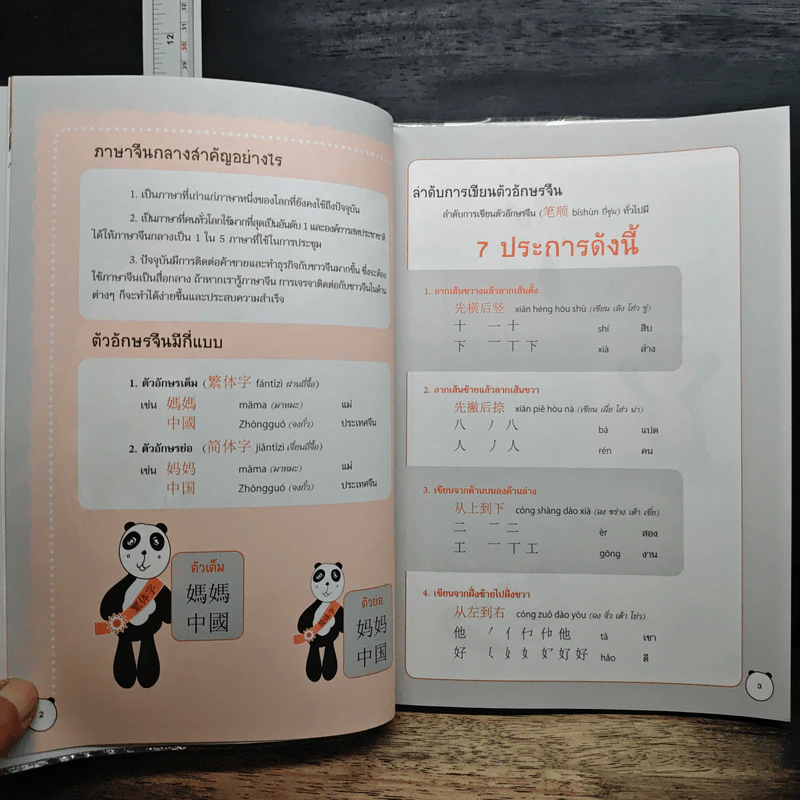 12
ภาษาจีนกลางสำคัญอย่างไร
1. เป็นภาษาที่เก่าแก่ภาษาหนึ่งของโลกที่ยังคงใช้ถึงปัจจุบัน
2. เป็นภาษาที่คนทั่วโลกใช้มากที่สุดเป็นอันดับ 1 และองค์การสหประชาชาติ
ได้ให้ภาษาจีนกลางเป็น 1 ใน 5 ภาษาที่ใช้ในการประชุม
3. ปัจจุบันมีการติดต่อค้าขายและทำธุรกิจกับชาวจีนมากขึ้น ซึ่งจะต้อง
ใช้ภาษาจีนเป็นสื่อกลาง ถ้าหากเรารู้ภาษาจีน การเจรจาติดต่อกับชาวจีนในด้าน
ต่างๆ ก็จะทำได้ง่ายขึ้นและประสบความสำเร็จ
ตัวอักษรจีนมีกี่แบบ
1. ตัวอักษรเต็ม (繁体字 fántǐzì ฝานถี่จื้อ)
เช่น 媽媽 māma (มาหมะ) แม่
中國 Zhōngguó (จงกั๋ว) ประเทศจีน
2. ตัวอักษรย่อ (简体字 jiǎntǐzì เจี่ยนถี่จื้อ)
เช่น 妈妈 māma (มาหมะ) แม่
中国 Zhōngguó (จงกั๋ว) ประเทศจีน
ตัวเต็ม
媽媽
中國
繁体字
ตัวย่อ
妈妈
中国
简体字
2
ลำดับการเขียนตัวอักษรจีน
ลำดับการเขียนตัวอักษรจีน (笔顺 bǐshùn ปี่ซุ่น) ทั่วไปมี
7 ประการดังนี้
1. ลากเส้นขวางแล้วลากเส้นตั้ง
先横后竖 xiān héng hòu shù (เซียน เหิง โฮ่ว ซู่)
十 一 十 shí สิบ
下 一 丅 下 xià ล่าง
2. ลากเส้นซ้ายแล้วลากเส้นขวา
先撇后捺 xiān piě hòu nà (เซียน เผี่ย โฮ่ว น่า)
八 丿 八 bā แปด
人 丿 人 rén คน
3. เขียนจากด้านบนลงด้านล่าง
从上到下 cóng shàng dào xià (ฉง ซ่าง เต้า เซี่ย)
二 一 二 èr สอง
工 一 丅 工 gōng งาน
4. เขียนจากฝั่งซ้ายไปฝั่งขวา
从左到右 cóng zuǒ dào yòu (ฉง จั่ว เต้า โย่ว)
他 tā เขา
好 hǎo ดี
3